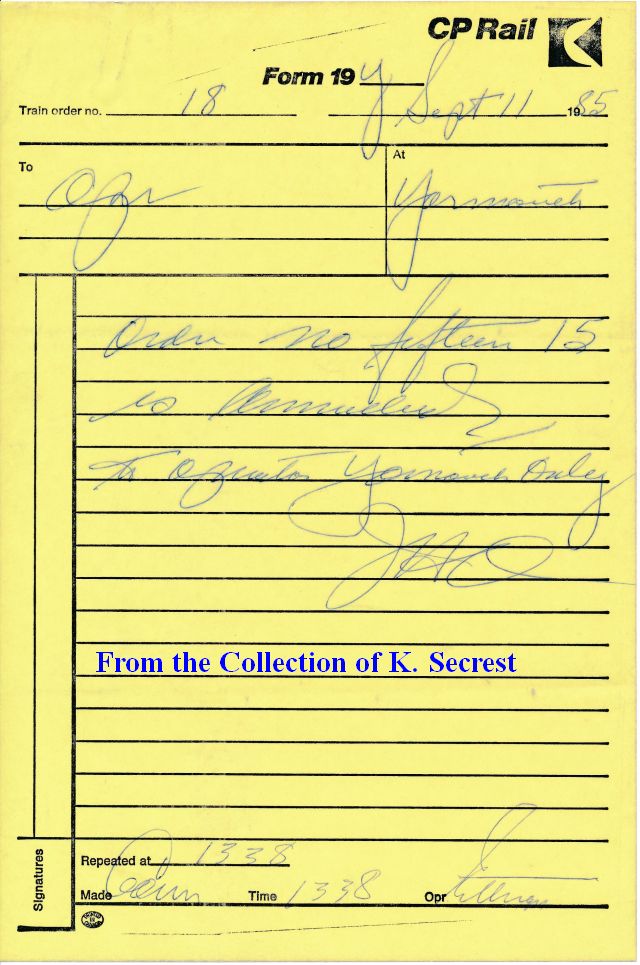 CP Rail
Form 19 Y
Train order no. 18 Sept 11 1985
To At
Opr Yarmouth
Order no fifteen 15
is annulled
to operator Yarmouth Only
From the Collection of K. Secrest
Signatures
Repeated at 1338
Made Com Time 1338 Opr